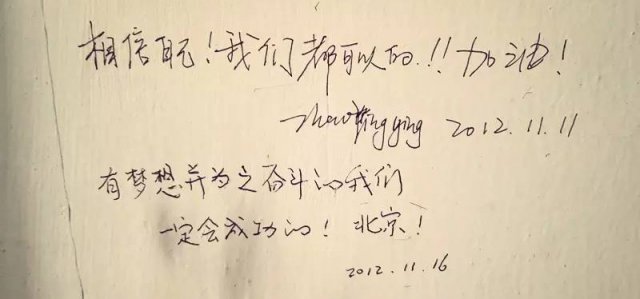 相信自己！我们都可以的!!加油！
Zhou Yingying 2012.11.11
有梦想并为之奋斗的我们
一定会成功的！北京！
2012.11.16